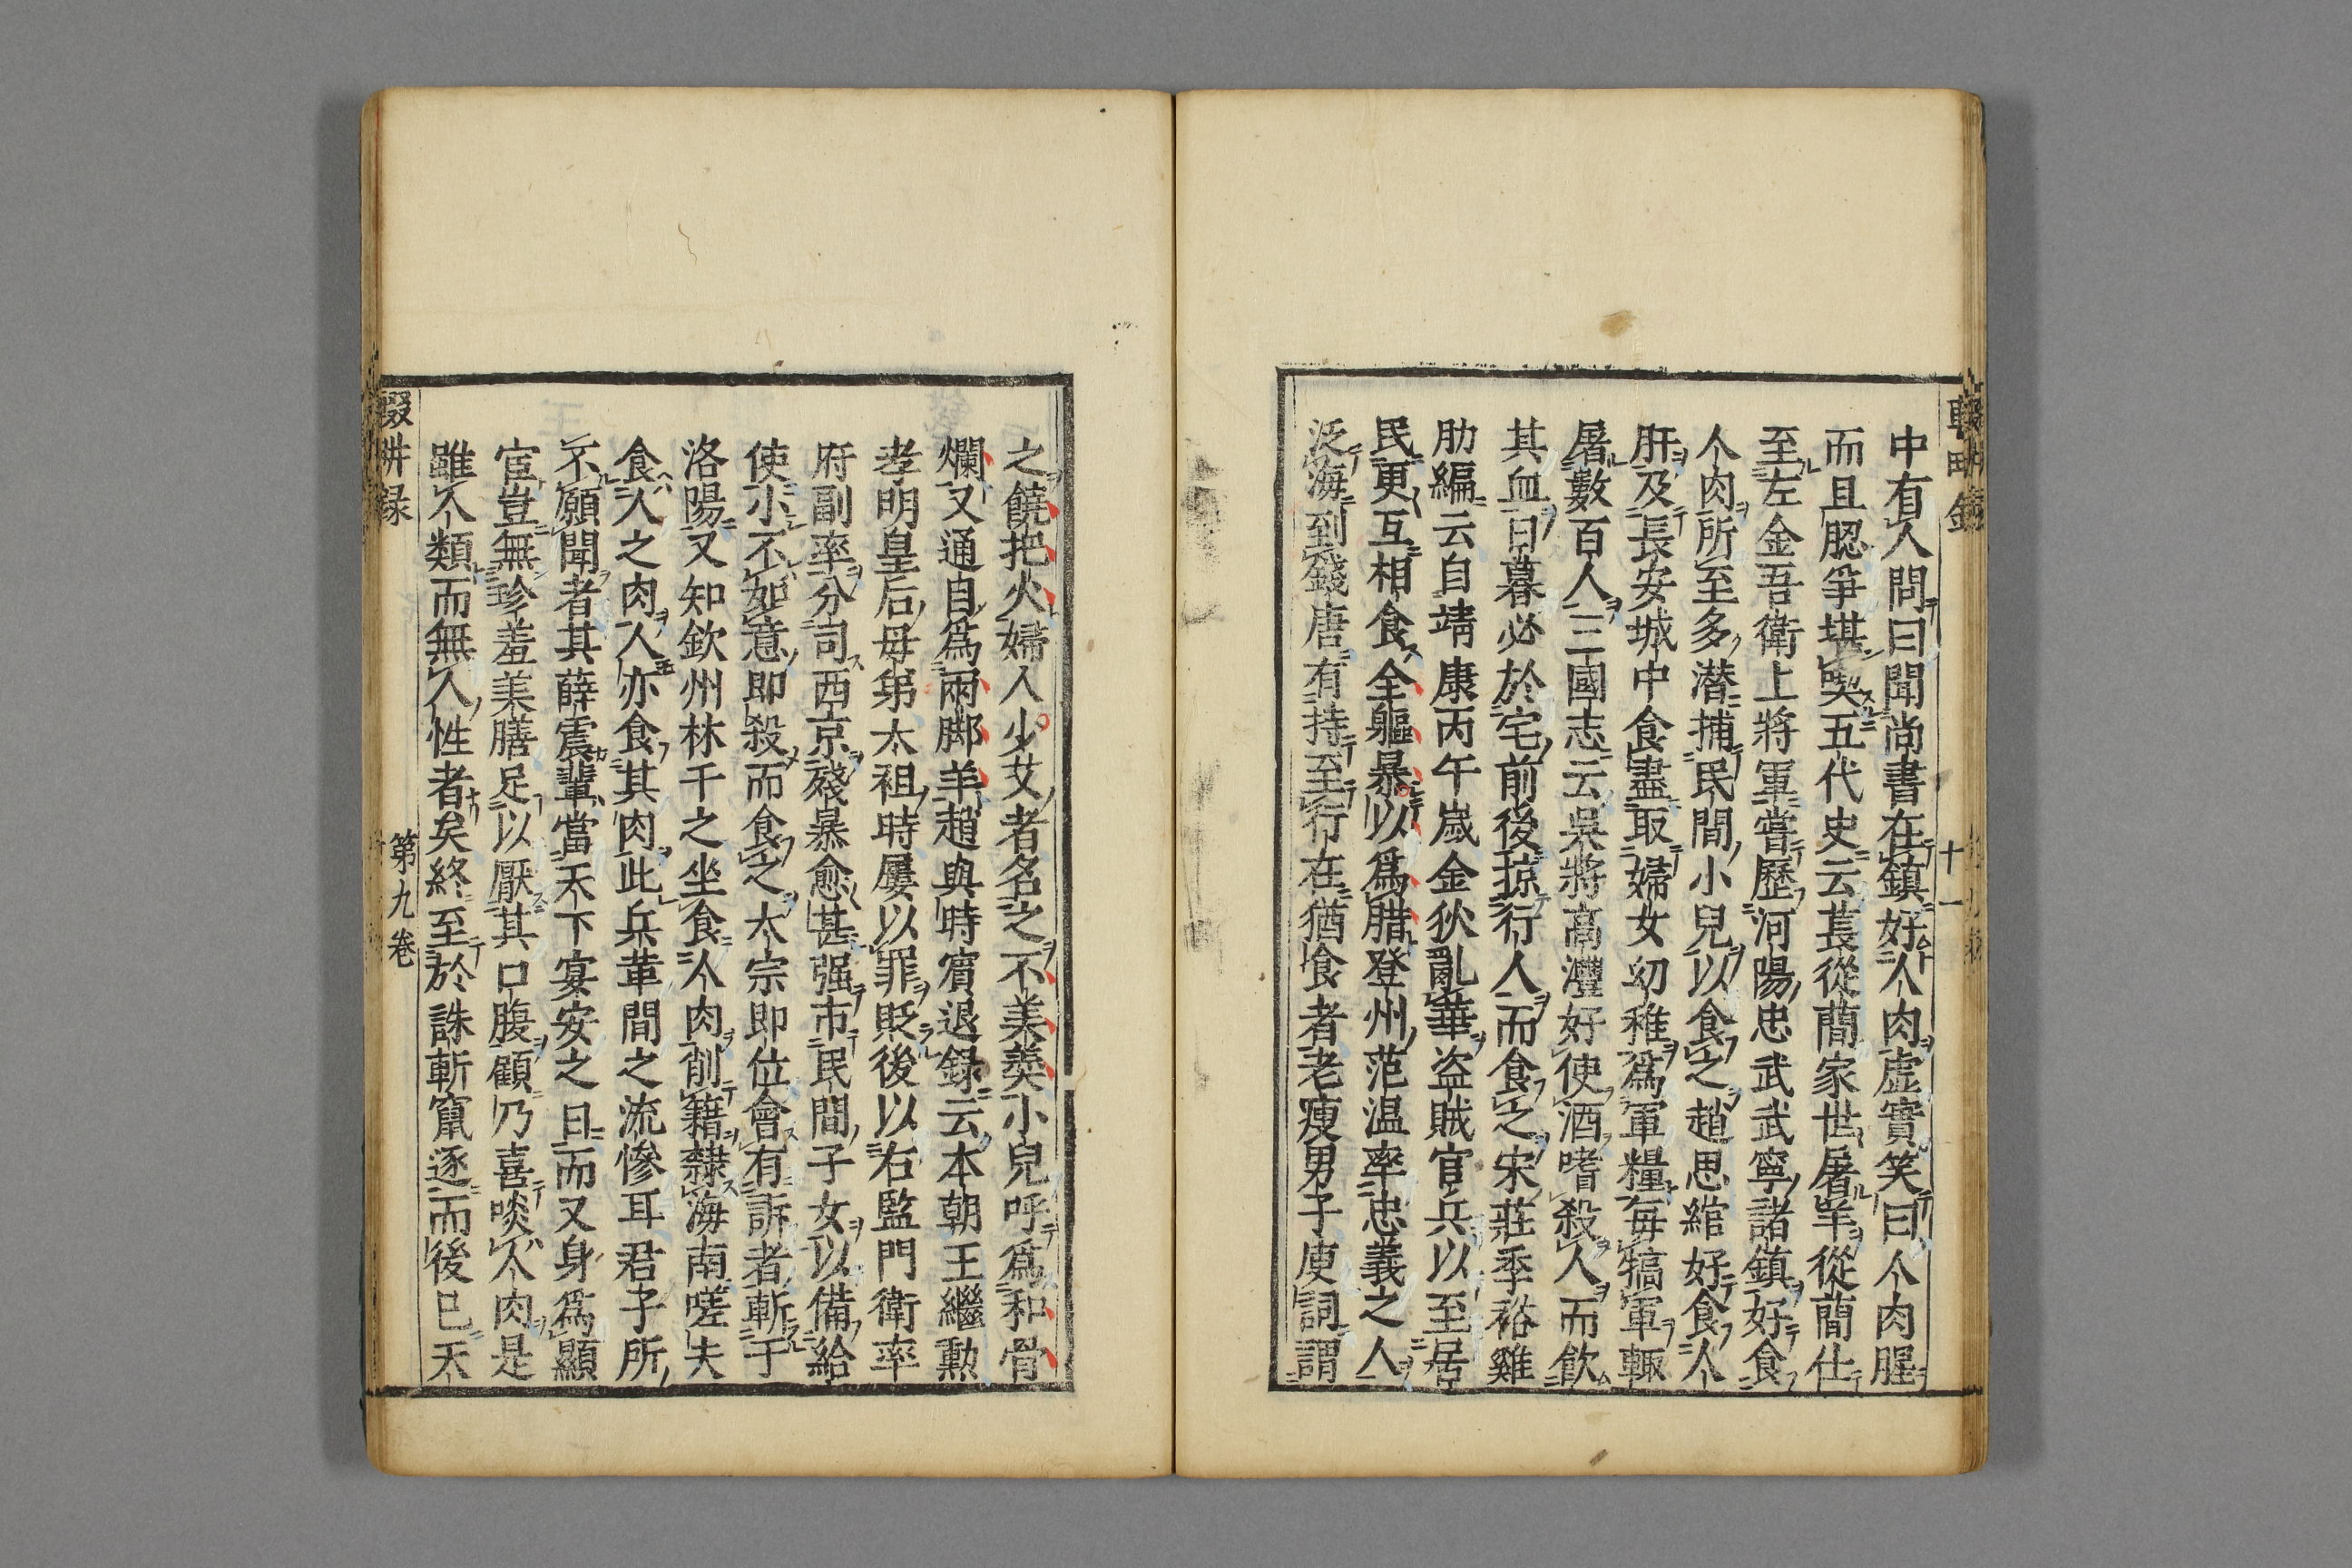 輟耕錄
十一
中有人問曰聞尚書在鎮好人肉虛實笑曰人肉腥
而且腮爭堪喫五代史云萇從蕳家世屠羊從蕳仕
至左金吾衛上將軍嘗歷河陽忠武武寧諸鎮好食
人肉所至多潜捕民間小兒以食之趙思綰好食人
肝及長安城中食盡取婦女幼稚爲軍糧每犒軍輙
屠數百人三國志云吳將高灃好使酒嗜殺人而飲
其血日暮必於宅前後掠行人而食之宋莊季裕雞
肋編云自靖康丙午嵗金狄亂華盗賊官兵以至居
民更互相食全軀暴以爲腊登州范温率忠義之人
泛海到錢唐有持至行在猶飡者老瘦男子庾詞謂
之饒把火婦人少艾者名之不美羹小兒呼爲和骨
爛又通自爲兩脚羊趙與時賓退録云本朝王繼勲
孝明皇后母弟太祖時屢以罪貶後以右監門衛率
府副率分司西京殘暴愈甚强市民間子女以備給
使小不如意即殺而食之太宗即位會有訴者斬于
洛陽又知欽州林千之坐食人肉削籍隸海南嗟夫
食人之肉人亦食其肉此兵革間之流慘耳君子所
不願聞者其薛震輩當天下宴安之日而又身爲顯
宦豈無珍羞美膳足以厭其口腹顧乃喜啖人肉是
雖人類而無人性者矣終至於誅斬竄逐而後已天
輟耕録
第九卷